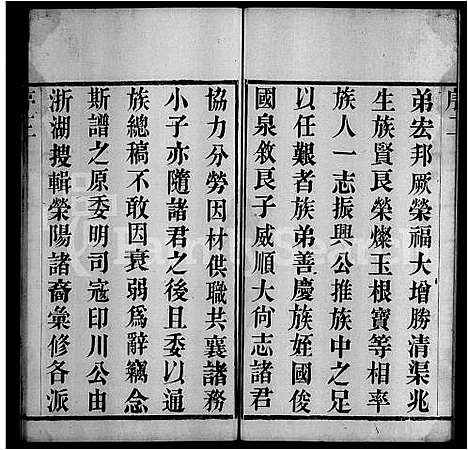 弟宏邦厥榮福大增勝清渠兆
生族賢良榮燦玉根寶等相率
族人一志振興公推族中之足
以任艱者族弟善慶族姪國俊
國泉敘良子威順大尙志諸君
協力分勞因材供職共襄諸務
小子亦隨諸君之後且委以通
族總稿不敢因衰弱爲辭竊念
斯譜之原委明司寇印川公由
浙湖搜輯榮陽諸裔彙修各派